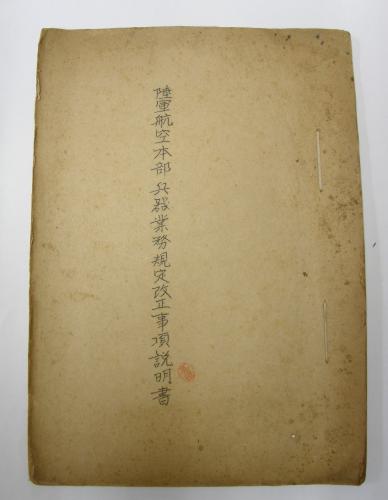 陸軍航空本部兵器業務規定改正事項説明書